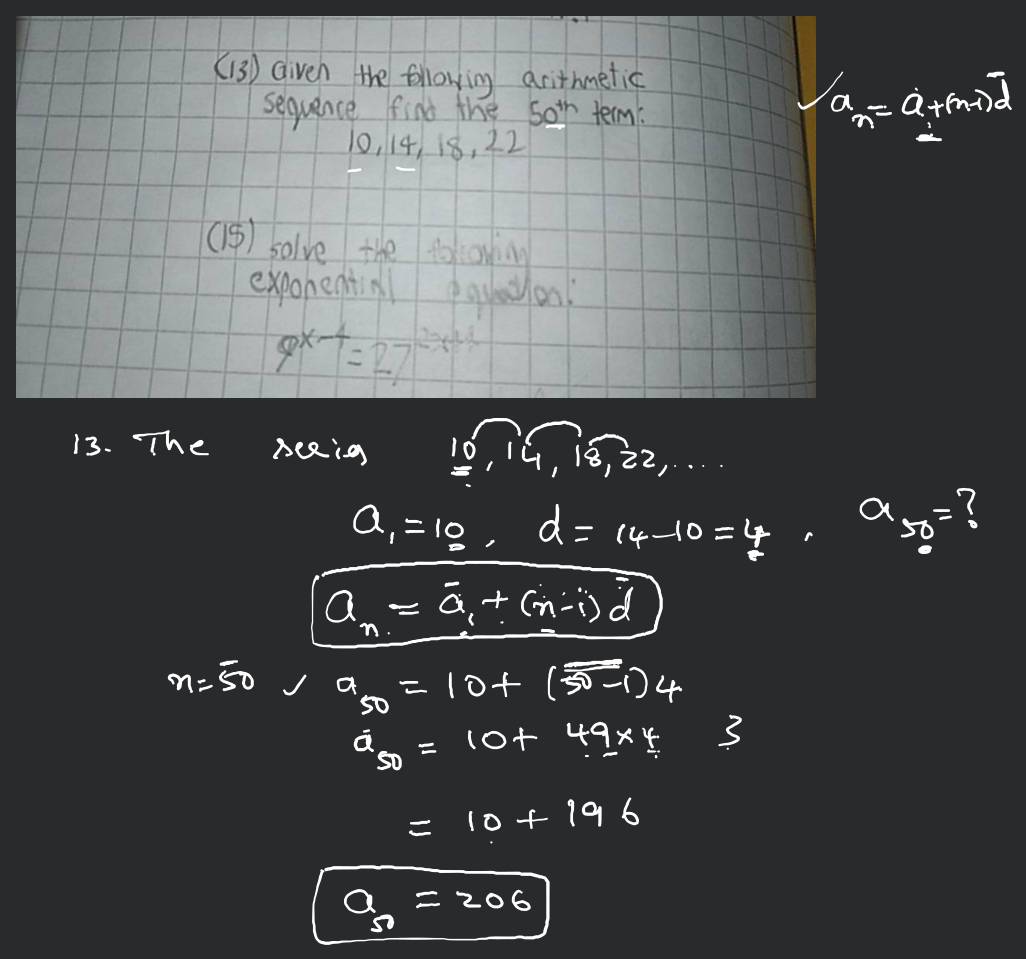 (13) Given the following arithmetic
sequence find the 50th term:
10, 14, 18, 22
aₙ = a₁ + (n-1)d
(15) solve the following
exponential equation:
9^(x-4) = 27
13. The series 10, 14, 18, 22, ....
a₁ = 10, d = 14-10 = 4, a₅₀ = ?
aₙ = a₁ + (n-1)d
n = 50 ✓ a₅₀ = 10 + (50-1)4
a₅₀ = 10 + 49×4 3
= 10 + 196
a₅₀ = 206